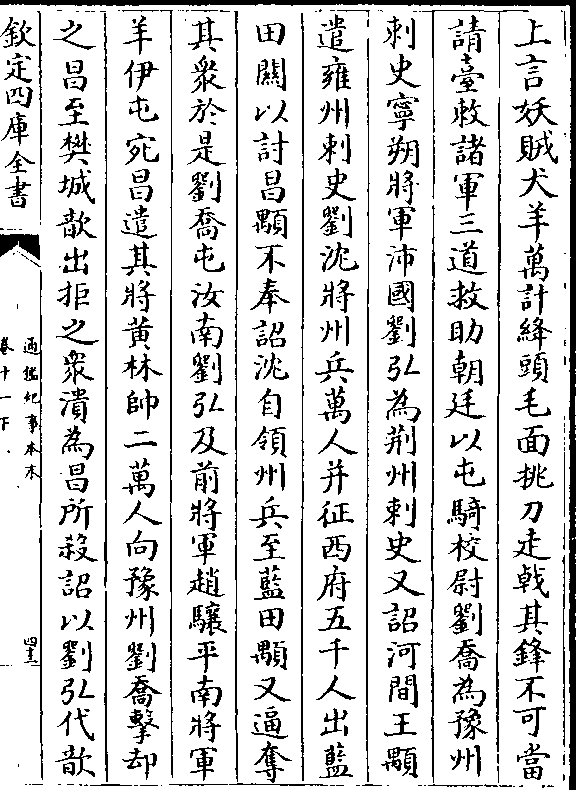 上言妖賊犬羊萬計絳頭毛面挑刀走戟其鋒不可當
請臺敕諸軍三道救助朝廷以屯騎校尉劉喬為豫州
刺史寧朔將軍沛國劉弘為荆州刺史又詔河間王顒
遣雍州刺史劉沈將州兵萬人并征西府五千人出藍
田關以討昌顒不奉詔沈自領州兵至藍田顒又逼奪
其衆於是劉喬屯汝南劉弘及前將軍趙驤平南將軍
羊伊屯宛昌遣其將黄林帥二萬人向豫州劉喬擊却
之昌至樊城歆出拒之衆潰為昌所殺詔以劉弘代歆
欽定四庫全書
通鑑紀事本末
卷十一下
四十三